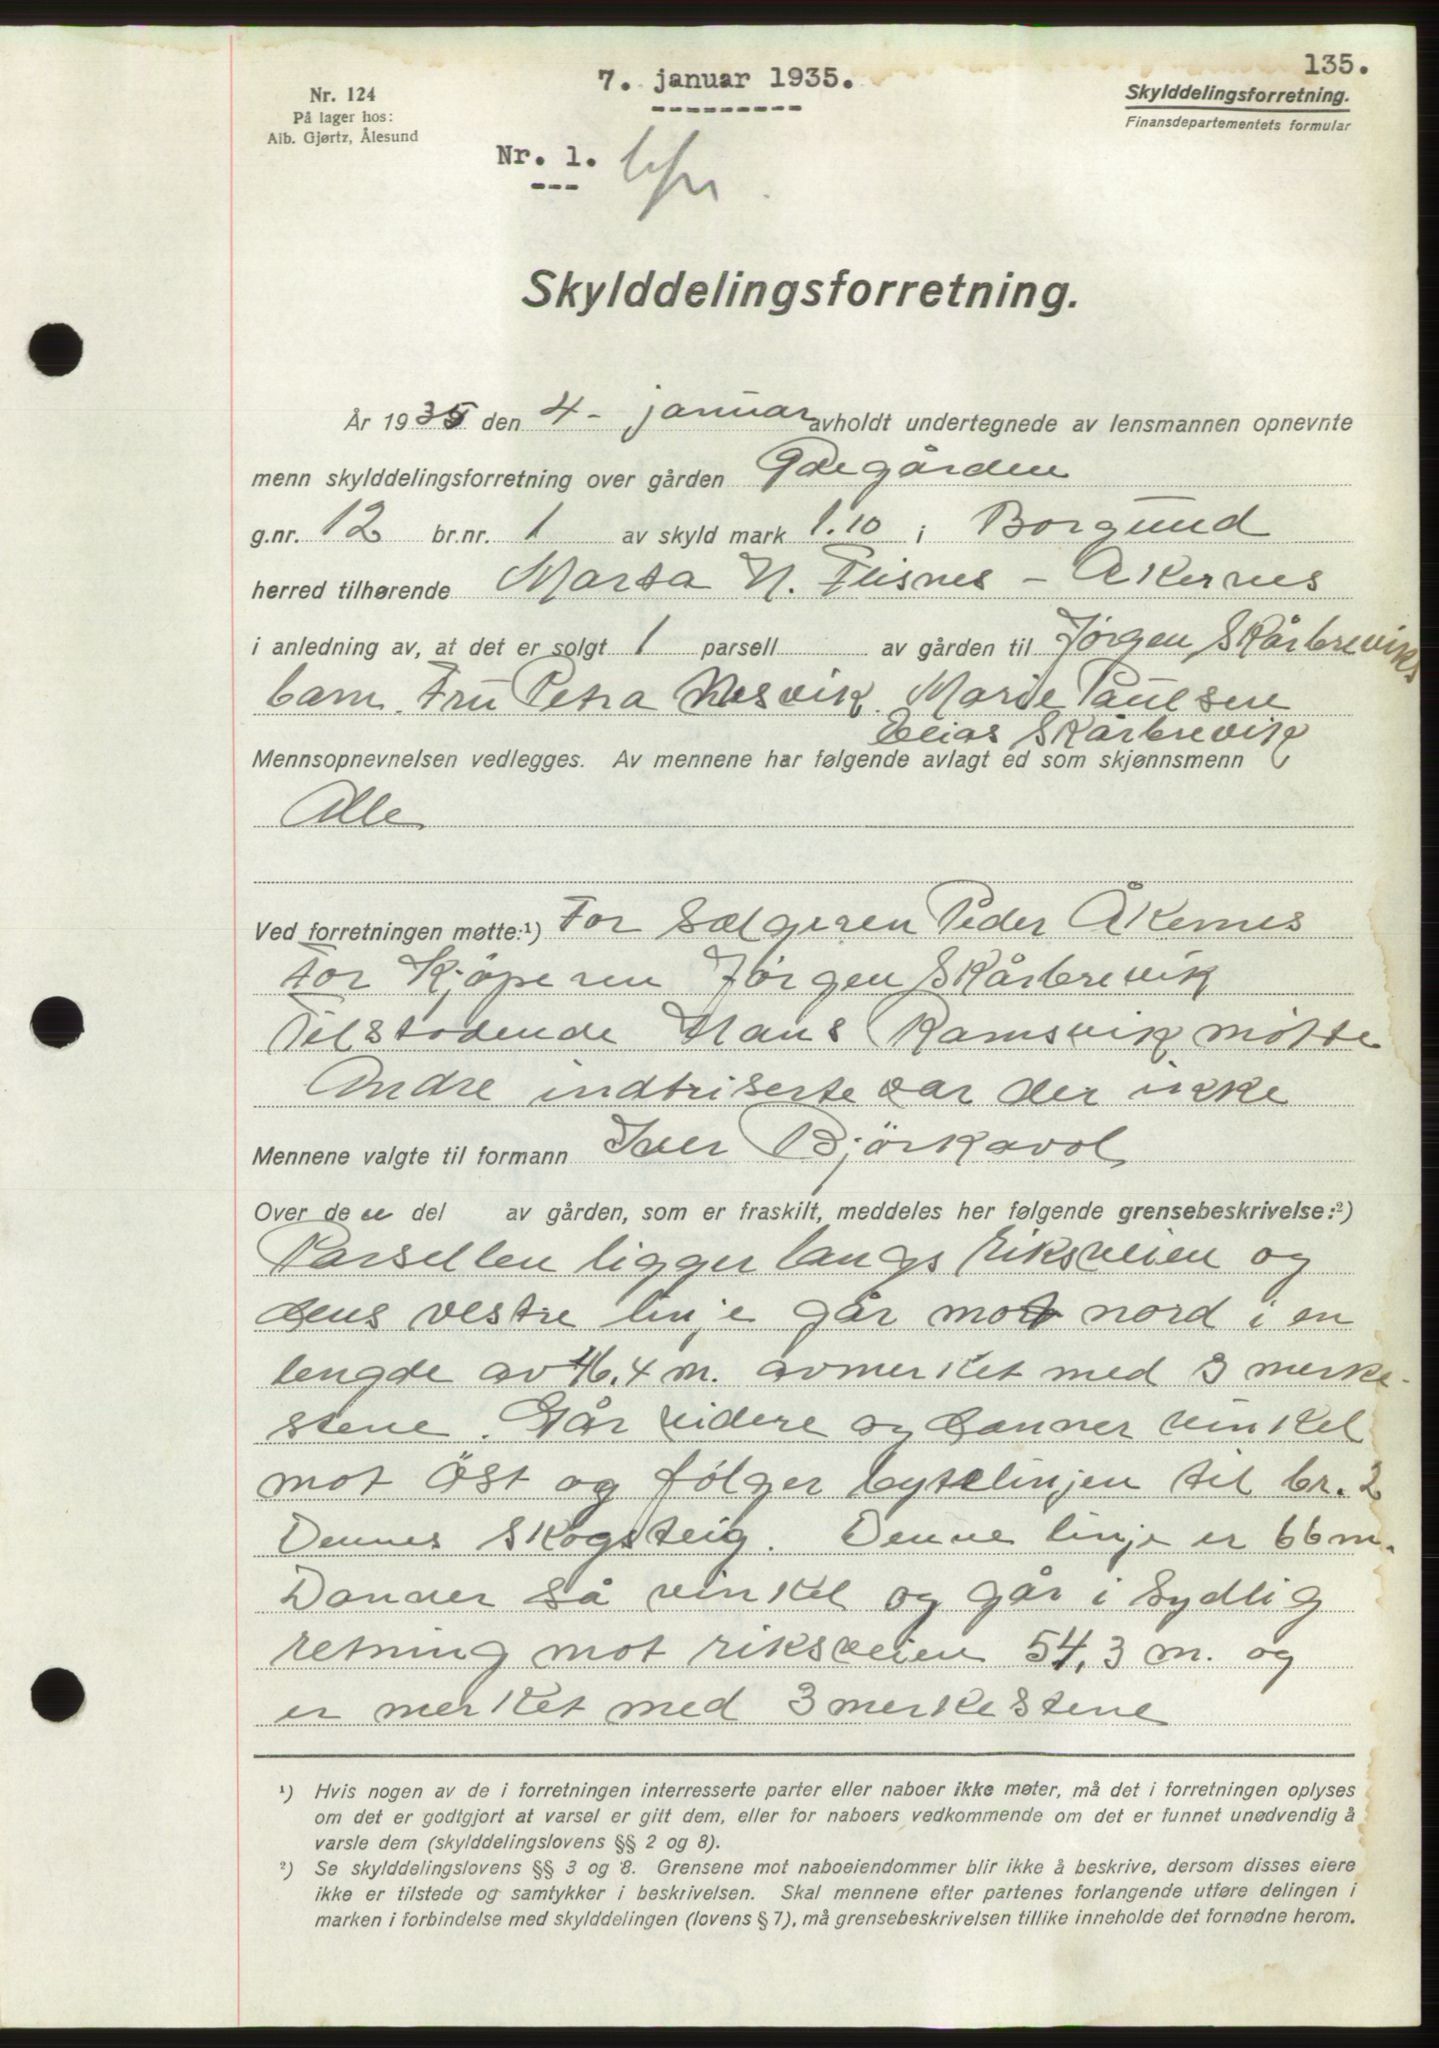 135.
7. januar 1935.
Nr. 124
På lager hos:
Alb. Gjørtz, Ålesund
Skylddelingsforretning.
Finansdepartementets formular
Nr. 1.
Skylddelingsforretning.
År 1935 den 4 - januar avholdt undertegnede av lensmannen opnevnte
menn skylddelingsforretning over gården Ødegården
g.nr. 12 br.nr. 1 av skyld mark 1.10 i Borgund
herred tilhørende Marta N. Flisnes - Akernes
i anledning av, at det er solgt 1 parsell av gården til Jørgen Skårbreviks
barn. Fru Petra Nesvik. Marie Paulsen
Elias Skårbrevik
Mennsopnevnelsen vedlegges. Av mennene har følgende avlagt ed som skjønnsmenn
Alle
Ved forretningen møtte:¹) For Sælgeren Peder Åkernes
For Kjöperen Jørgen Skårbrevik
Tilstødende Hans Ramsvik møtte
Andre indtriserte var der ikke
Mennene valgte til formann Iver Björkavol
Over de n del av gården, som er fraskilt, meddeles her følgende grensebeskrivelse:²)
Parsellen ligger langs Riksveien og
dens vestre linje går mot nord i en
lengde av 46.4 m. avmerket med 3 merke-
stene. Går videre og danner vinkel
mot Öst og følger bytelinjen til br. 2
Dennes Skogsteig. Denne linje er 66 m.
Danner så vinkel og går i Sydlig
retning mot riksveien 54,3 m. og
er merket med 3 merkestene
¹) Hvis nogen av de i forretningen interresserte parter eller naboer ikke møter, må det i forretningen oplyses
om det er godtgjort at varsel er gitt dem, eller for naboers vedkommende om det er funnet unødvendig å
varsle dem (skylddelingslovens §§ 2 og 8).
²) Se skylddelingslovens §§ 3 og 8. Grensene mot naboeiendommer blir ikke å beskrive, dersom disses eiere
ikke er tilstede og samtykker i beskrivelsen. Skal mennene efter partenes forlangende utføre delingen i
marken i forbindelse med skylddelingen (lovens § 7), må grensebeskrivelsen tillike inneholde det fornødne herom.